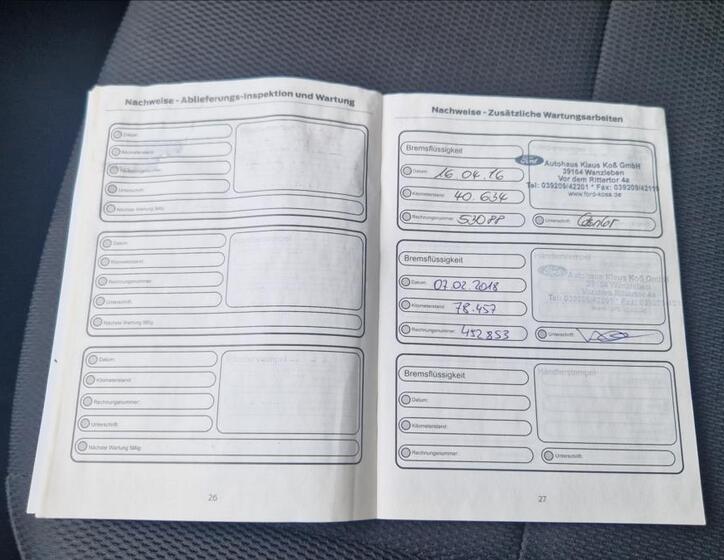 Nachweise - Ablieferungs-Inspektion und Wartung
Datum:
Kilometerstand:
Rechnungsnummer:
Unterschrift:
Nächste Wartung fällig:
Datum:
Kilometerstand:
Rechnungsnummer:
Unterschrift:
Nächste Wartung fällig:
Datum:
Kilometerstand:
Rechnungsnummer:
Unterschrift:
Nächste Wartung fällig:
26
Nachweise - Zusätzliche Wartungsarbeiten
Bremsflüssigkeit
Datum: 16 04.16
Kilometerstand: 40.634
Rechnungsnummer: 53088
Ford
Autohaus Klaus Koß GmbH
39164 Wanzleben
Vor dem Rittertor 4a
Tel: 039209/42201 * Fax: 039209/42119
www.ford-koss.de
Unterschrift:
Bremsflüssigkeit
Datum: 07.02.2018
Kilometerstand: 78.457
Rechnungsnummer: 452853
Händlerstempel
Ford
Autohaus Klaus Koß GmbH
39164 Wanzleben
Vor dem Rittertor 4a
Unterschrift:
Bremsflüssigkeit
Datum:
Kilometerstand:
Rechnungsnummer:
Händlerstempel
Unterschrift:
27